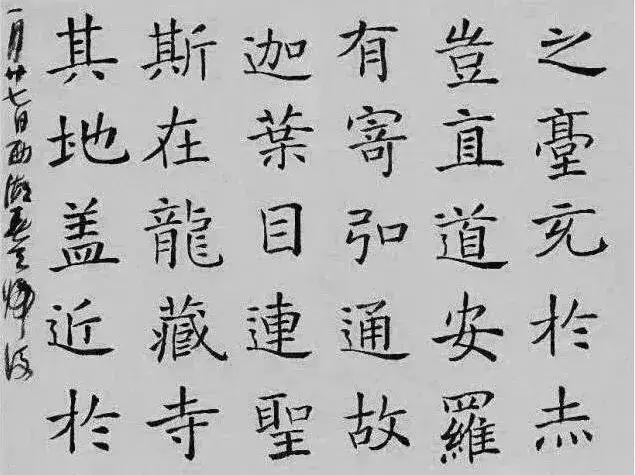 之臺充於赤
豈直道安羅
有寄弘通故
迦葉目連聖
斯在龍藏寺
其地盖近於
一月廿七日西湖